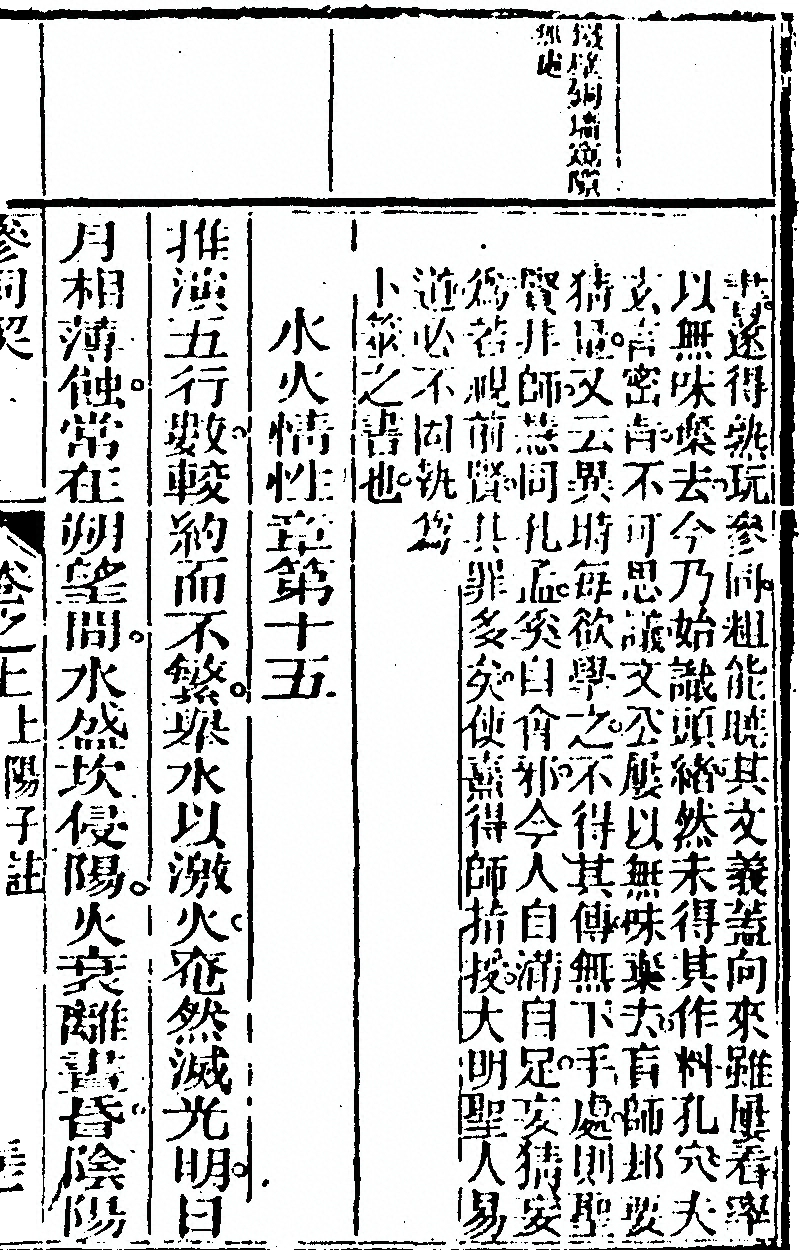 鐵壁銅墻窺隙
無處
書遂得熟玩參同粗能曉其文義蓋向來雖屢看率
以無味棄去今乃始識頭緒然未得其作料孔穴夫
玄言密旨不可思議文公屢以無味棄去盲師邪妄
猜量又云異時每欲學之不得其傳無下手處則聖
賢非師慧同孔孟奚自肯邪今人自滿自足妄猜妄
爲若視前賢其罪多矣使熹得師指授大明聖人易
道必不固執爲
卜筮之書也
水火情性章第十五
推演五行數較約而不繁舉水以激火奄然滅光明日
月相薄蝕常在朔望間水盛坎侵陽火衰離晝昏陰陽
參同契
卷之上 上陽子註